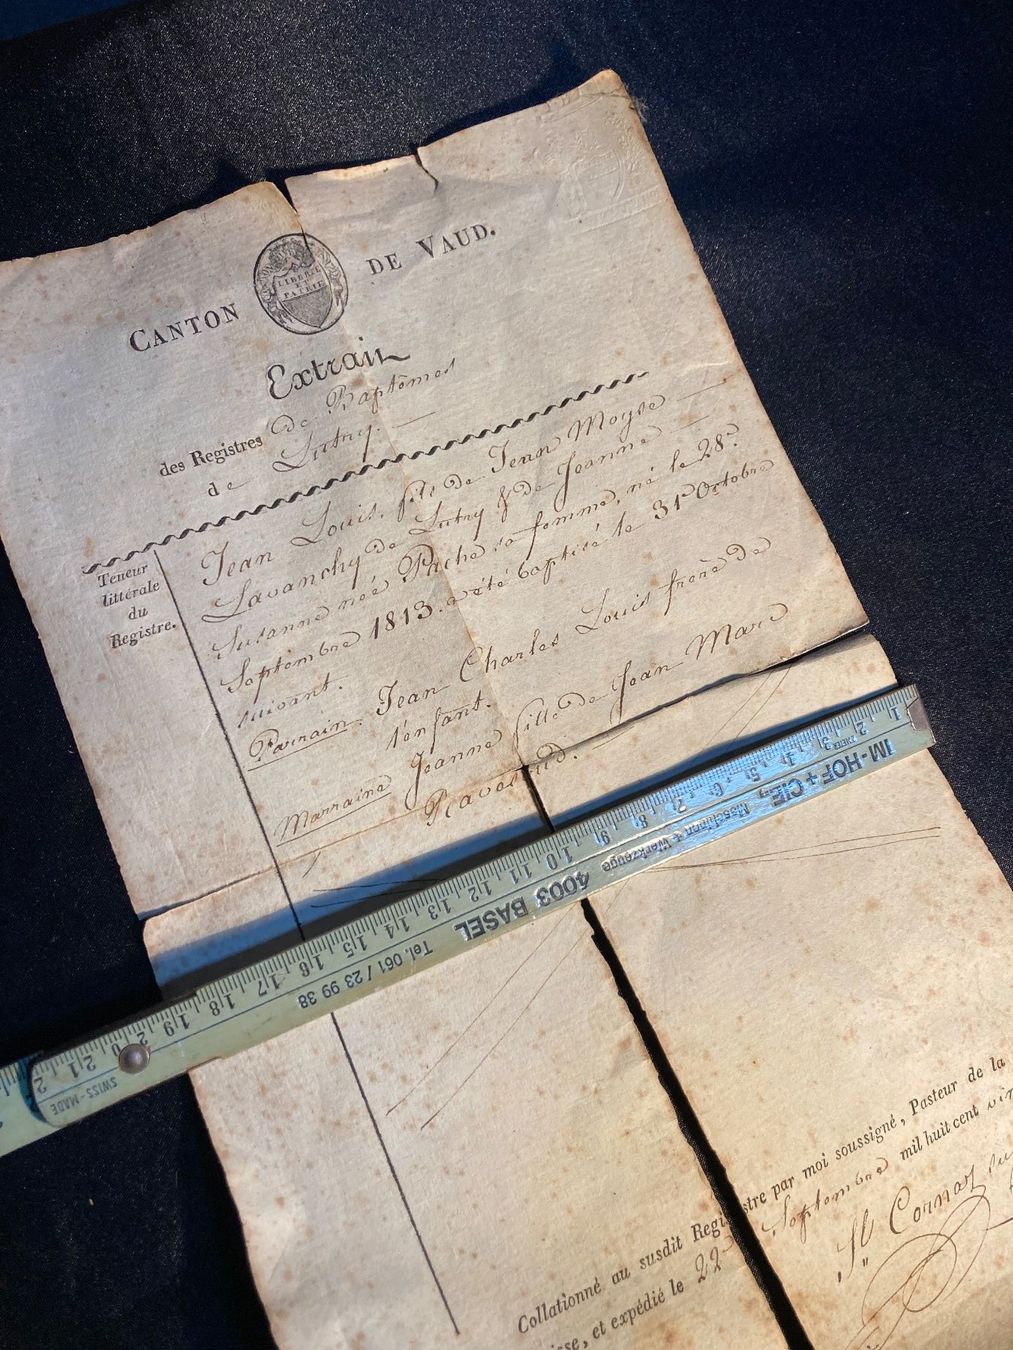 CANTON DE VAUD.
LIBERTÉ
ET
PATRIE
Extrait
des Registres de Baptêmes
de Lutry.
Teneur
littérale
du
Registre.
Jean Louis, fils de Jean Moyse
Lavanchy de Lutry & de Jeanne
Susanne née Pache sa femme, né le 28e
Septembre 1813. a été baptisé le 31e Octobre
suivant.
Parrain. Jean Charles Louis frère de
l'enfant.
Marraine Jeanne fille de Jean Marc
1 2 3 4 5 6 7 8 9 10 11 12 13 14 15 16 17 18 19 20 21 2
IM-HOF+CIE Maschinen + Werkzeuge
4003 BASEL Tel. 061 / 23 99 38
SWISS-MADE
Collationné au susdit Registre par moi soussigné, Pasteur de la
isse, et expédié le 22e Septembre mil huit cent